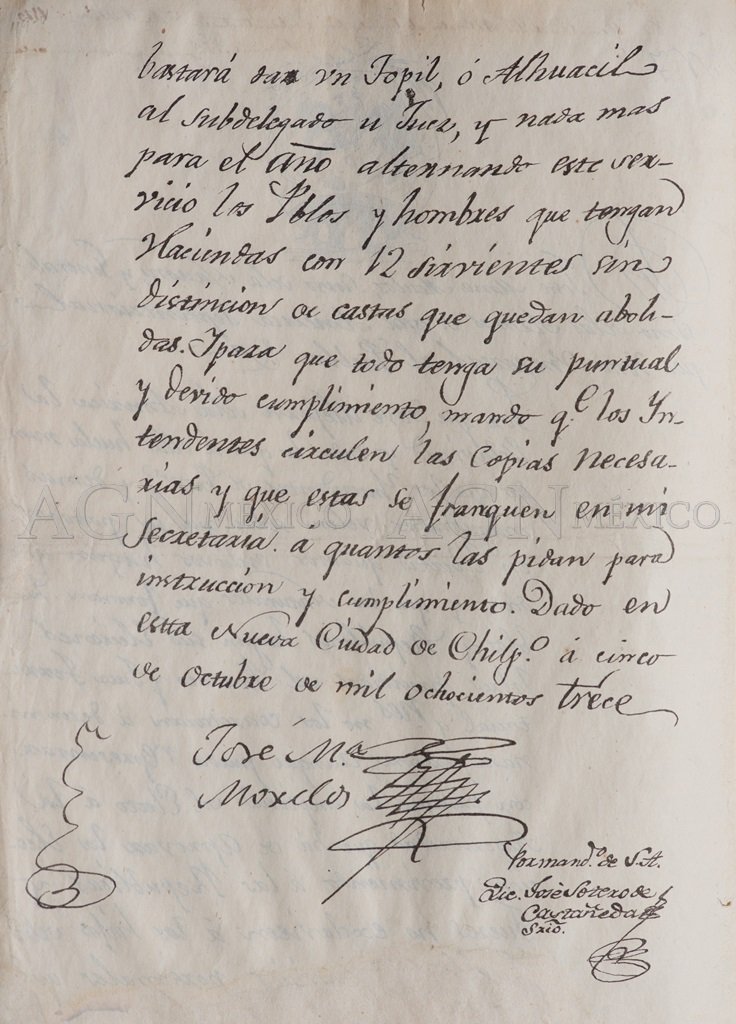 bastará dar vn Topil, ó Alhuacil
al subdelegado u Juez, y nada mas
para el año alternando este ser-
vicio los Pblos y hombres que tengan
Haciendas con 12 sirvientes sin
distincion de castas que quedan aboli-
das. Ypara que todo tenga su puntual
y devido cumplimiento, mando q.e los Yn-
tendentes circulen las Copias necesa-
rias y que estas se franquen en mi
AGN MÉXICO AGN MÉXICO
Secretaría á quantos las pidan para
instruccion y cumplimiento. Dado en
estta Nueva Ciudad de Chilp.o á cinco
de Octubre de mil ochocientos trece
José M.a
Morelos
Pormand.o de S.A.
Lic. José Sotero de
Castañeda
Srio.